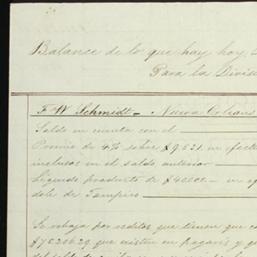 Balance de lo que hay hoy
Para la Divis
F. W. Schmidt — Nueva Orleans
Saldo en cuenta con el
Premio de 4% sobre $9.521. en efect
incluidos en el saldo anterior
Líquido producto de $4000 — en
dole de Tampico
Se rebaja por creditos que tienen que
$7020629 que existen en pagarés y